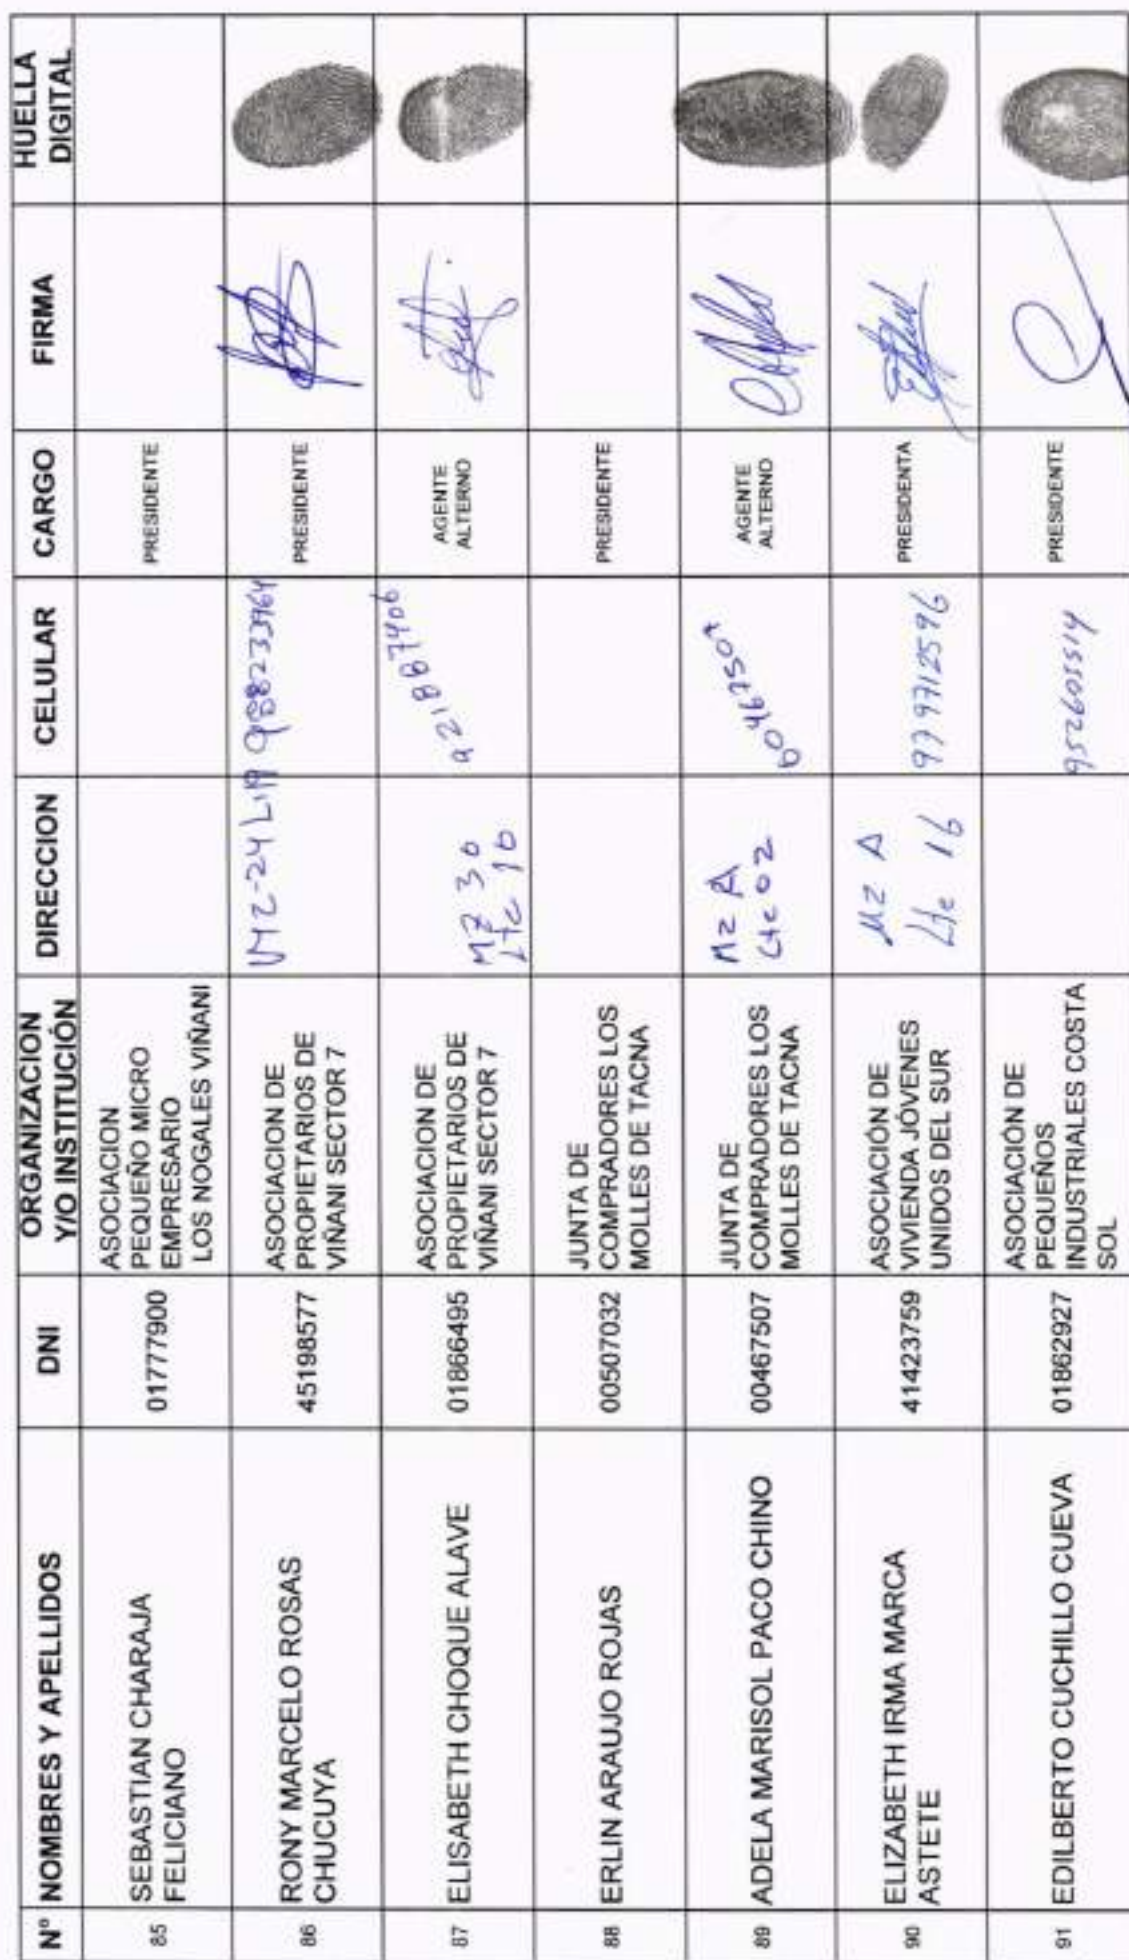 Nº NOMBRES Y APELLIDOS DNI ORGANIZACION Y/O INSTITUCIÓN DIRECCION CELULAR CARGO FIRMA HUELLA DIGITAL
85 SEBASTIAN CHARAJA FELICIANO 01777900 ASOCIACION PEQUEÑO MICRO EMPRESARIO LOS NOGALES VIÑANI PRESIDENTE
86 RONY MARCELO ROSAS CHUCUYA 45198577 ASOCIACION DE PROPIETARIOS DE VIÑANI SECTOR 7 MZ-24 L19 988233964 PRESIDENTE
87 ELISABETH CHOQUE ALAVE 01866495 ASOCIACION DE PROPIETARIOS DE VIÑANI SECTOR 7 MZ 30 Lte 10 AGENTE ALTERNO
88 ERLIN ARAUJO ROJAS 00507032 JUNTA DE COMPRADORES LOS MOLLES DE TACNA PRESIDENTE
89 ADELA MARISOL PACO CHINO 00467507 JUNTA DE COMPRADORES LOS MOLLES DE TACNA Mz A Lte 02 00467507 AGENTE ALTERNO
90 ELIZABETH IRMA MARCA ASTETE 41423759 ASOCIACIÓN DE VIVIENDA JÓVENES UNIDOS DEL SUR Mz A Lte 16 979712596 PRESIDENTA
91 EDILBERTO CUCHILLO CUEVA 01862927 ASOCIACIÓN DE PEQUEÑOS INDUSTRIALES COSTA SOL PRESIDENTE